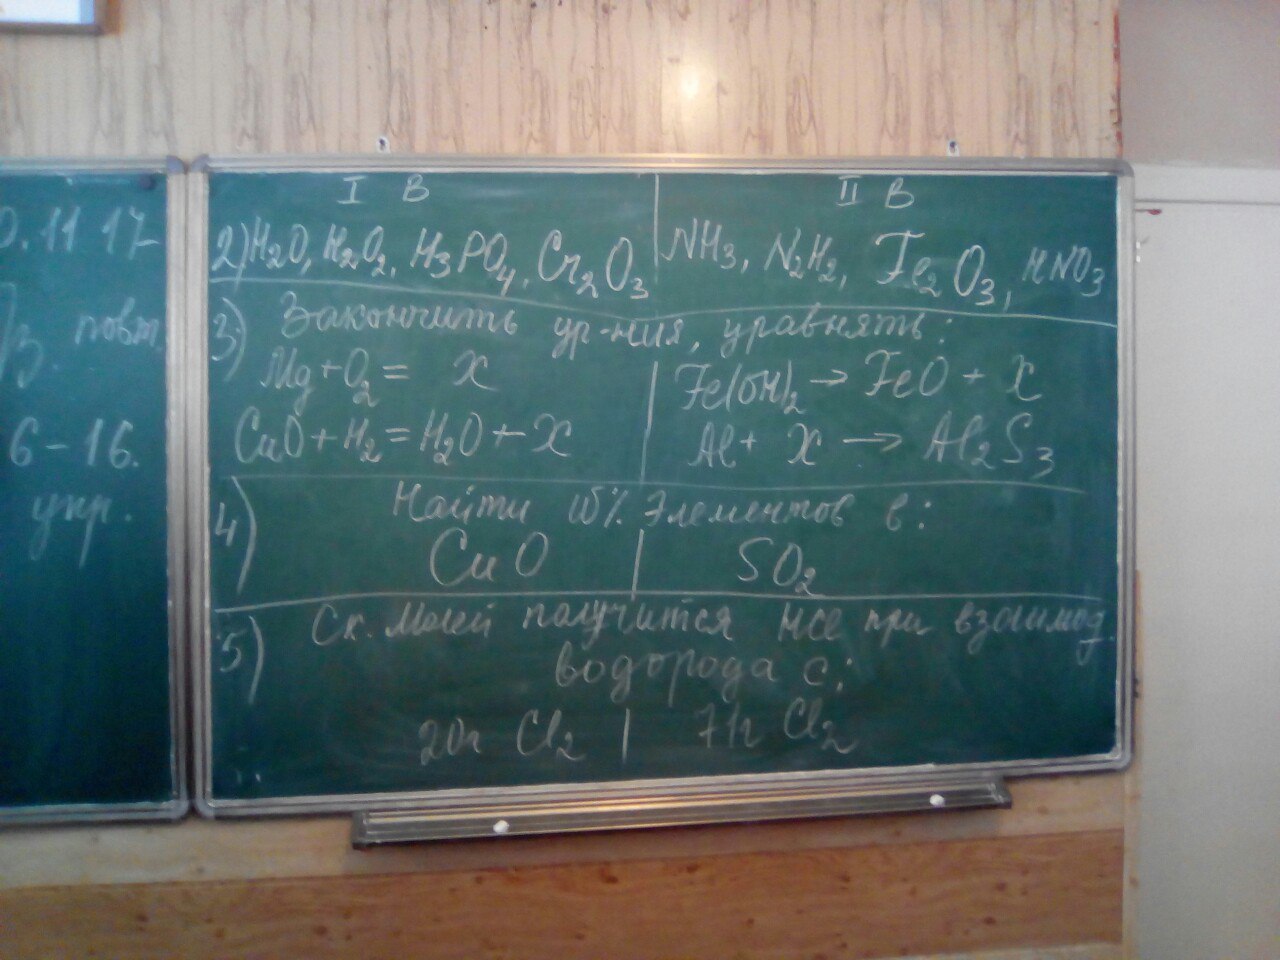 0.11 17
повт.
6-16.
упр.
I В
II В
2) H₂O, H₂O₂, H₃PO₄, Cr₂O₃
NH₃, N₂H₂, Fe₂O₃, HNO₃
3) Закончить ур-ния, уравнять:
Mg+O₂ = X
Fe(OH)₂ → FeO + X
CuO+H₂=H₂O+X
Al+ X → Al₂S₃
4) Найти W% элементов в:
CuO
SO₂
5) Ск. молей получится HCl при взаимод.
водорода с:
20г Cl₂
71г Cl₂